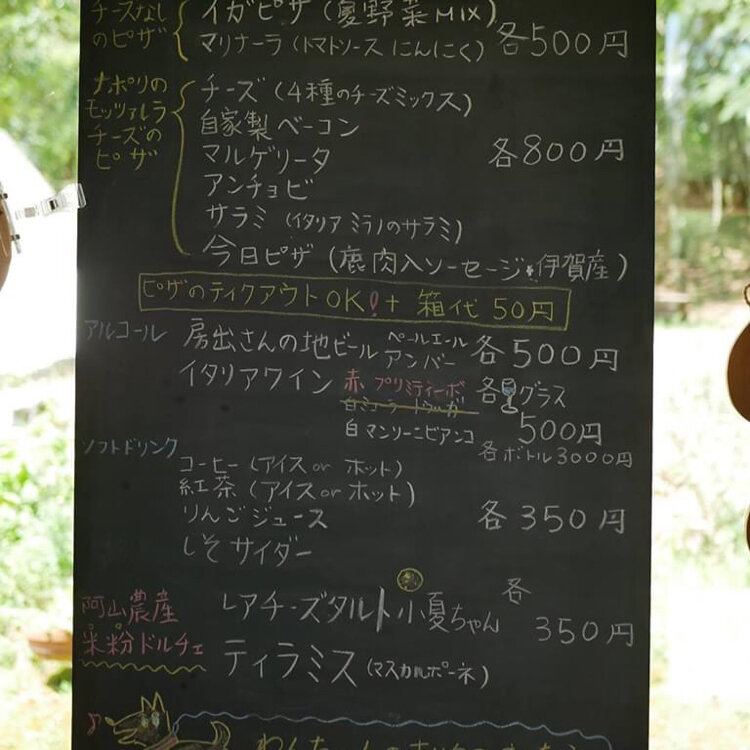 チーズなし
のピザ
イガピザ (夏野菜MIX)
マリナーラ (トマトソース にんにく) 各500円
ナポリの
モッツァレラ
チーズの
ピザ
チーズ (4種のチーズミックス)
自家製ベーコン
マルゲリータ
アンチョビ
各800円
サラミ (イタリア ミラノのサラミ)
今日ピザ (鹿肉入ソーセージ・伊賀産)
ピザのテイクアウトOK!+ 箱代 50円
アルコール
房出さんの地ビール ペールエール アンバー 各500円
イタリアワイン 赤 プリミティーボ 各グラス
白マンリーニビアンコ 500円
各ボトル3000円
ソフトドリンク
コーヒー (アイス or ホット)
紅茶 (アイス or ホット)
りんごジュース 各350円
しそサイダー
阿山農産
米粉ドルチェ
レアチーズタルト 小夏ちゃん 各
350円
ティラミス (マスカルポーネ)